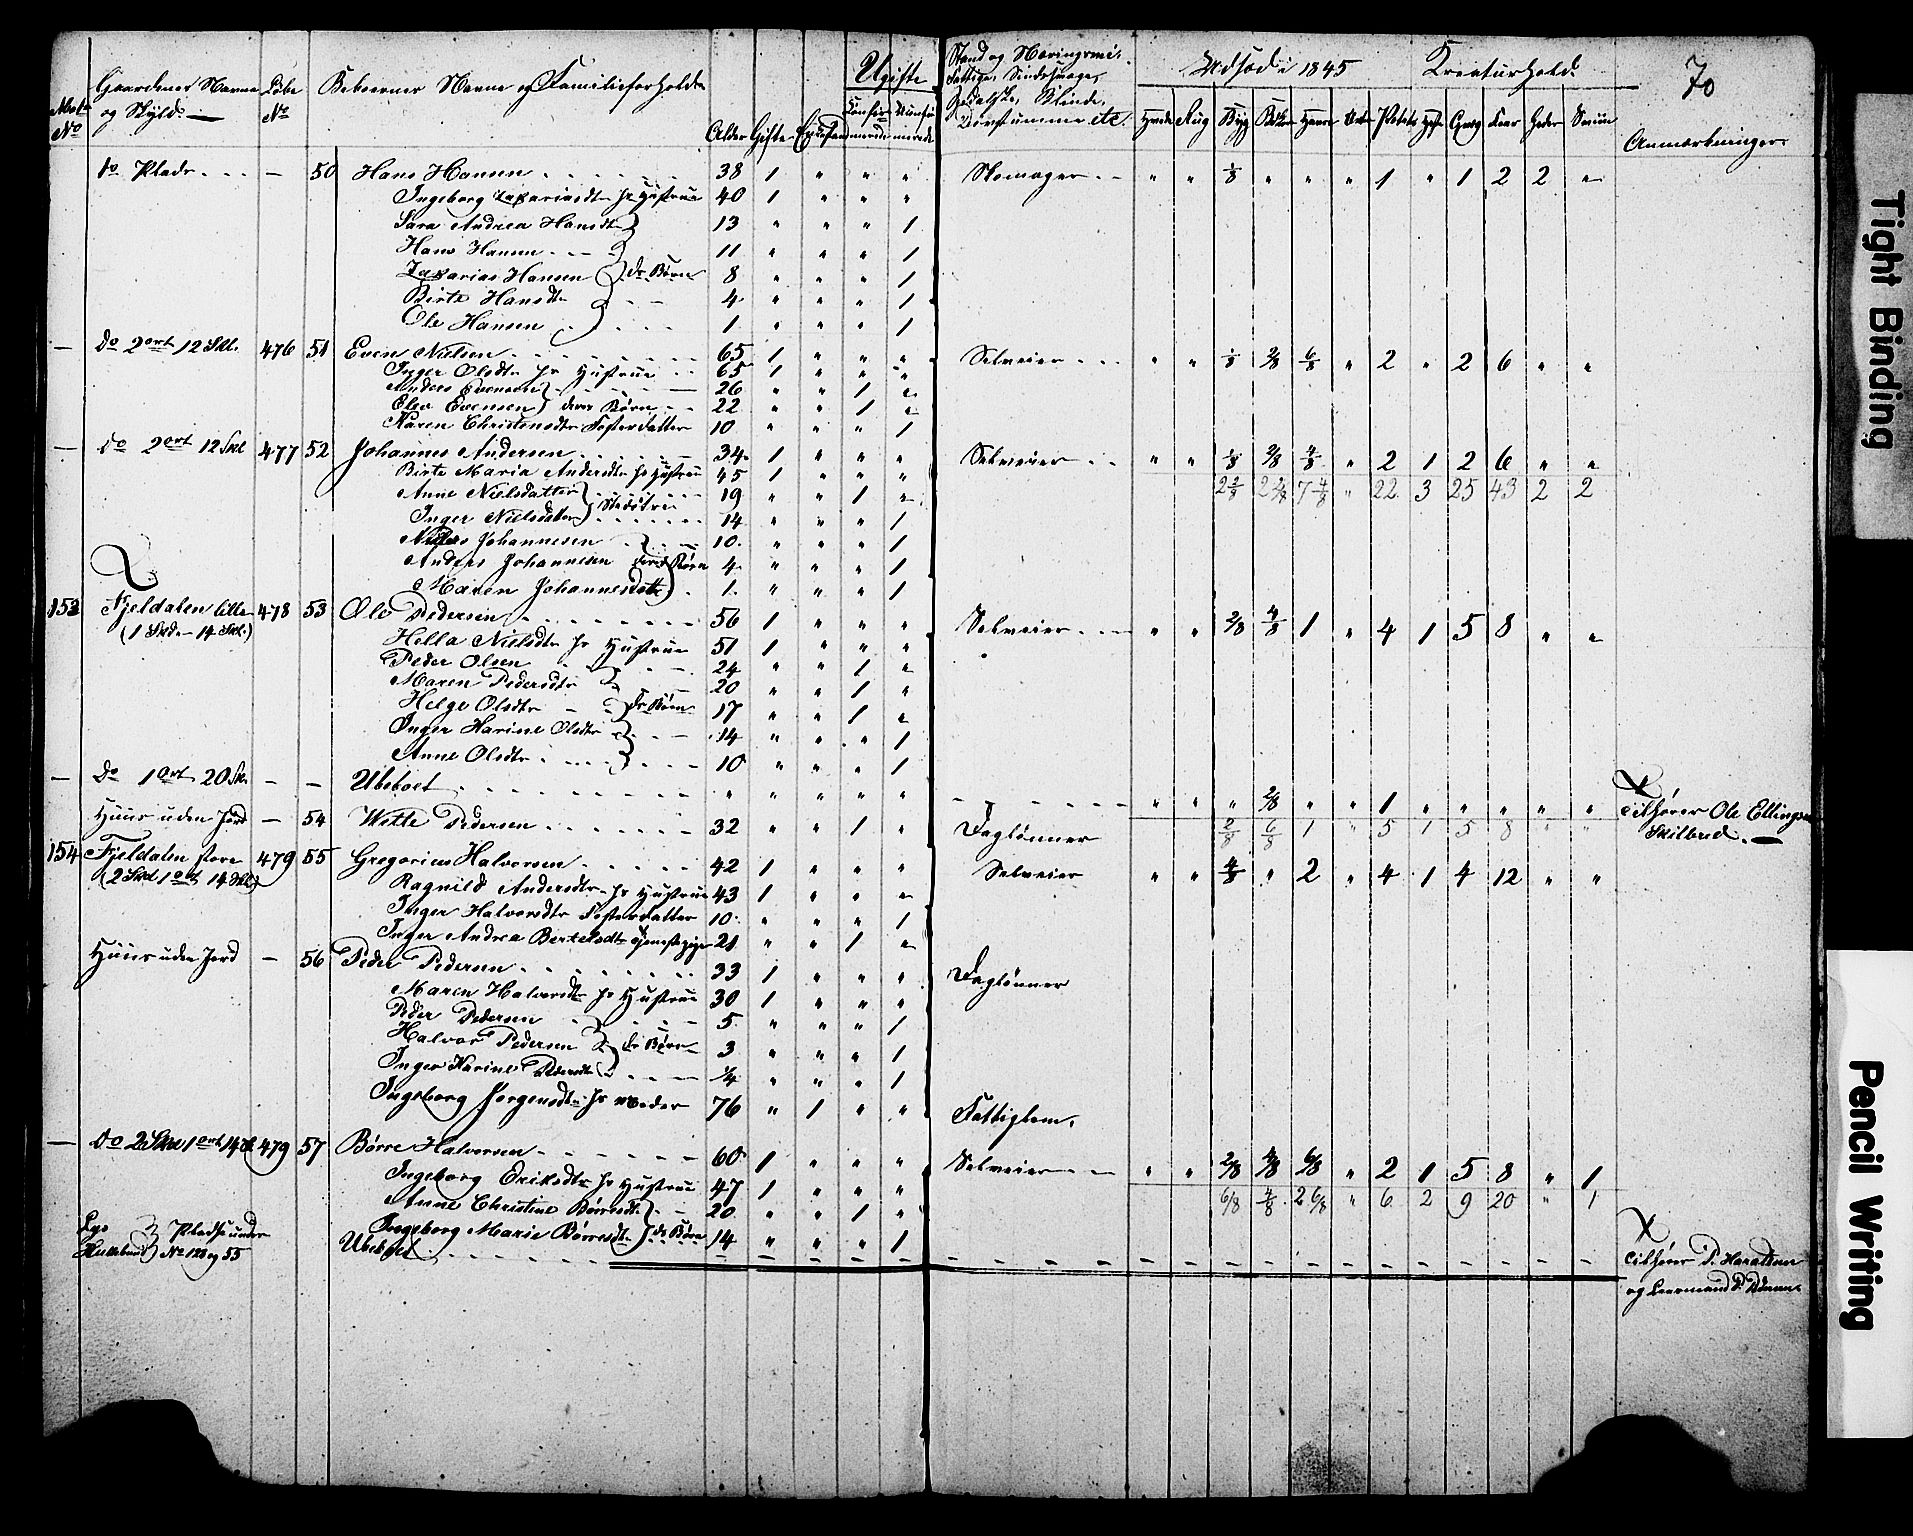 70
Matr. No | Gaardenes Navne og Skyld. | Løbe No | Beboernes Navne og Familieforhold | Alder | Gifte | Ugifte | Stand og Næringsvei, Fattige, Sindssvage, Blinde, Døvstumme etc. | Udsæd i 1845 | Kreaturhold | Anmærkninger
Hvede | Rug | Byg | Havre | Potet | Heste | Qvæg | Faar | Geder | Sviin
do Plads | — | 50 | Hans Hansen | 38 | 1 | " | " | " | Skomager | " | " | 1/8 | " | " | " | 1 | " | 1 | 2 | 2 | "
Ingeborg Zakariasdtr hs Hustrue | 40 | 1 | " | " | "
Sara Andrea Hansdtr | 13 | " | " | " | 1
Hans Hansen | 11 | " | " | " | 1
Zakarias Hansen | ds Børn | 8 | " | " | " | 1
Birte Hansdtr | 4 | " | " | " | 1
Ole Hansen | 1 | " | " | " | 1
— | Do 2 ort 12 Skl. | 476 | 51 | Even Nielsen | 65 | 1 | " | " | " | Selveier | " | " | 1/8 | 2/8 | 6/8 | " | 2 | " | 2 | 6 | " | "
Inger Olsdtr hs Hustrue | 65 | 1 | " | " | "
Anders Evensen | 26 | " | " | 1 | "
Elev Evensen | deres Børn | 22 | " | " | 1 | "
Karen Christensdtr Fosterdatter | 10 | " | " | " | 1
— | Do 2 ort 12 Skl | 477 | 52 | Johannes Andersen | 34 | 1 | " | " | " | Selveier | " | " | 1/8 | 2/8 | 4/8 | " | 2 | 1 | 2 | 6 | " | "
Birte Maria Andersdtr hs Hustrue | 45 | 1 | " | " | "
2 2/8 | 2 2/8 | 7 4/8 | " | 22 | 3 | 25 | 43 | 2 | 2
Anne Nielsdatter | 19 | " | " | 1 | "
Inger Nielsdatter | 14 | " | " | " | 1
Johannesen | 10 | " | " | " | 1
Anders Johannesen | deres Børn | 4 | " | " | " | 1
Maren Johannesdtr | 1 | " | " | " | 1
153 | Fjeldalen lille | 478 | 53 | Ole Pedersen | 56 | 1 | " | " | " | Selveier | " | " | 2/8 | 4/8 | 1 | " | 4 | 1 | 5 | 8 | " | "
(1 Skd. 14 Skl.)
Hella Nielsdtr hs Hustrue | 51 | 1 | " | " | "
Peder Olsen | 24 | " | " | 1 | "
Maren Pedersdtr | 20 | " | " | 1 | "
Helge Olsdtr | ds Børn | 17 | " | " | 1 | "
Inger Karine Olsdtr | 14 | " | " | " | 1
Anne Olsdtr | 10 | " | " | " | 1
— | Do 1 ort 20 Sk. | — | — | Ubeboet | " | " | " | " | " | " | " | " | 2/8 | " | " | 1 | " | " | " | " | " | X tilhører Ole Ellingsen
Skilbred.
Huus uden Jord | — | 54 | Pedersen | 32 | " | " | 1 | " | Daglønner | 2/8 | 6/8 | 1 | " | 5 | 1 | 5 | 8 | " | "
154 | Fjeldalen store | 479 | 55 | Gregorius Halvorsen | 42 | 1 | " | " | " | Selveier | " | " | 4/8 | " | 2 | " | 4 | 1 | 4 | 12 | " | "
(2 Skd 1 ort 14 Skl)
Ragnild Andersdtr hs Hustrue | 43 | 1 | " | " | "
Inger Halvorsdtr Fosterdatter | 10 | " | " | " | 1
Inger Andrea Bertelsdtr Tjenestepige | 21 | " | " | 1 | "
Huus uden Jord | — | 56 | Peder Pedersen | 33 | 1 | " | " | " | Daglønner
Maren Halvorsdtr hs Hustrue | 30 | 1 | " | " | "
Peder Pedersen | 5 | " | " | " | 1
Halvor Pedersen | ds Børn | 3 | " | " | " | 1
Inger Karine Pedersdtr | 1/4 | " | " | " | 1
Ingeborg Jørgensdtr hs Moder | 76 | " | 1 | " | " | Fattiglem.
— | Do 2 Skd 1 ort 14 | 479 | 57 | Børre Halvorsen | 60 | 1 | " | " | " | Selveier | " | " | 2/8 | 4/8 | 6/8 | " | 2 | 1 | 5 | 8 | " | 1
Ingeborg Eriksdtr hs Hustrue | 47 | 1 | " | " | "
6/8 | 4/8 | 2 6/8 | " | 6 | 2 | 9 | 20 | " | 1
Anne Christine Børresdtr | 20 | " | " | 1 | "
Ingeborg Marie Børresdtr | ds Børn | 14 | " | " | " | 1
Pladse under
No 128 og 55 | Ubeboet | X tilhører P. Haraldsen
og
Tight Binding
Pencil Writing